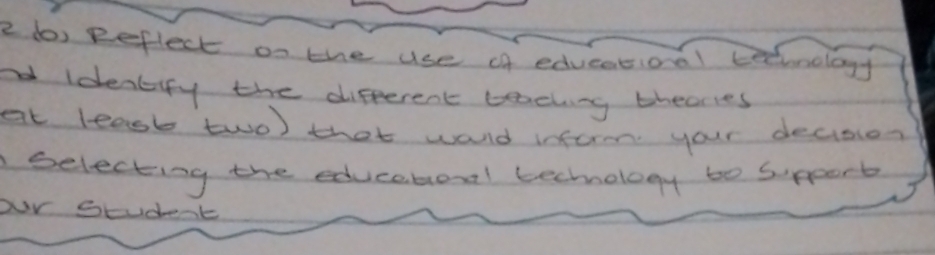 2 b) Reflect on the use of educational technology
nd Identify the different teaching theories
at least two) that would inform your decision
selecting the educational technology to support
our student